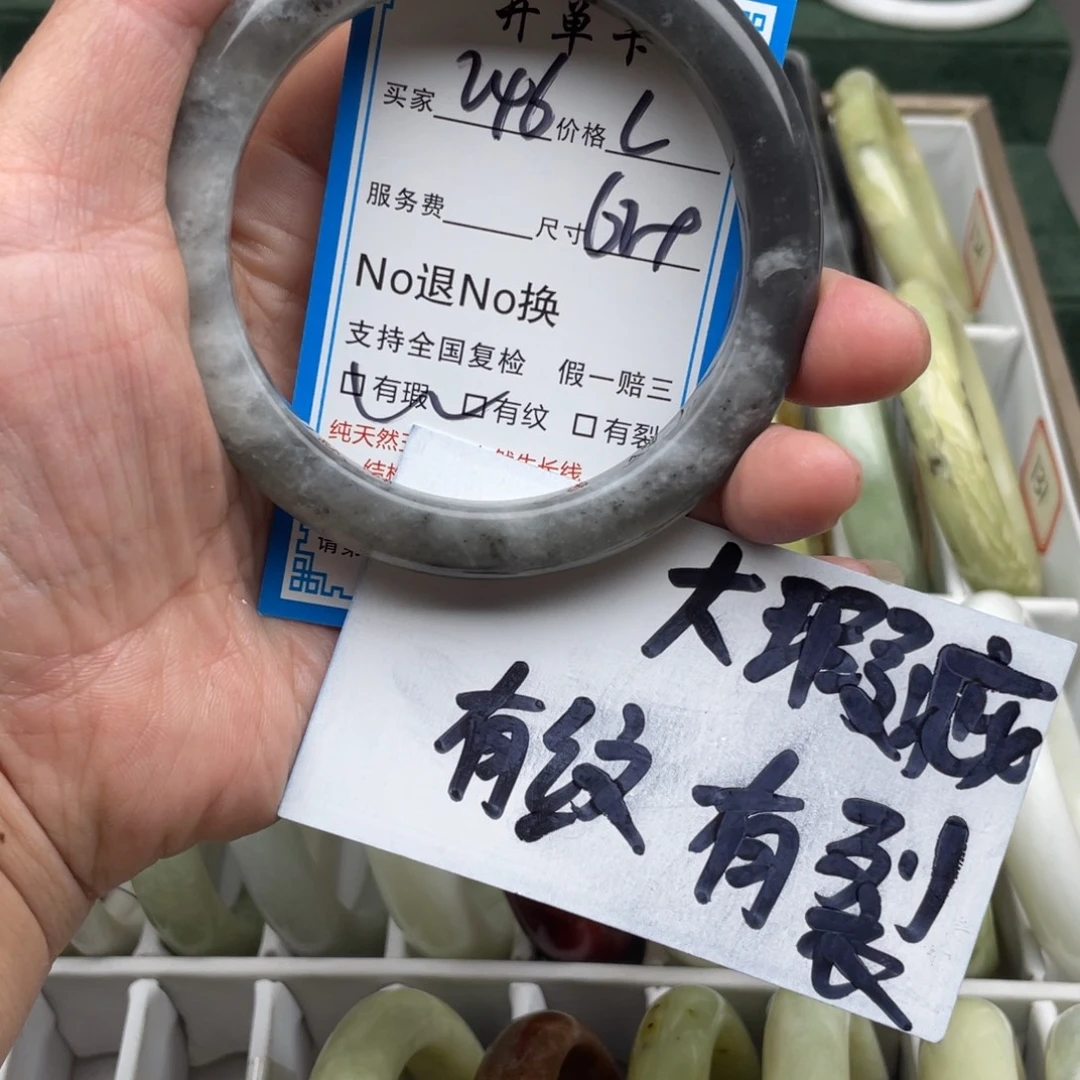 开单卡
买家 246 价格 L
服务费 尺寸
No退No换
支持全国复检 假一赔三
□有瑕 □有纹 □有裂
纯天然 然生长线
结构
请
大瑕疵
有纹 有裂